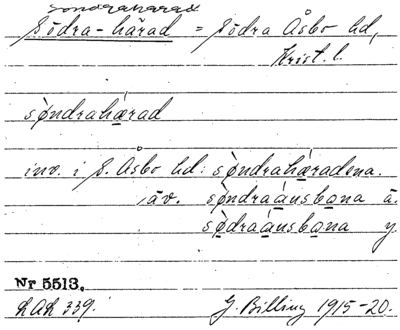 Söndrahärad
Södra-härad = Södra Åsbo hd,
Krist. l.
sø̀ndrahæ̀rad
inv. i S. Åsbo hd: sø̀ndrahæ̀radena.
äv. sø̀ndraáusbona ä.
sø̀draáusbona y.
Nr 5513.
LAL 339.
J. Billing 1915-20.